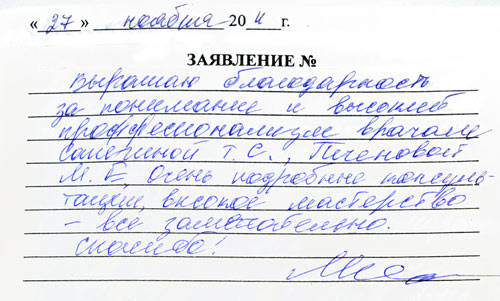 «27» ноября 20 11 г.
ЗАЯВЛЕНИЕ №
Выражаю благодарность
за понимание и высокий
профессионализм врачам
Т.С., Пиченовой
М.Е. Очень подробные консуль-
тации, высокое мастерство
– все замечательно.
Спасибо!